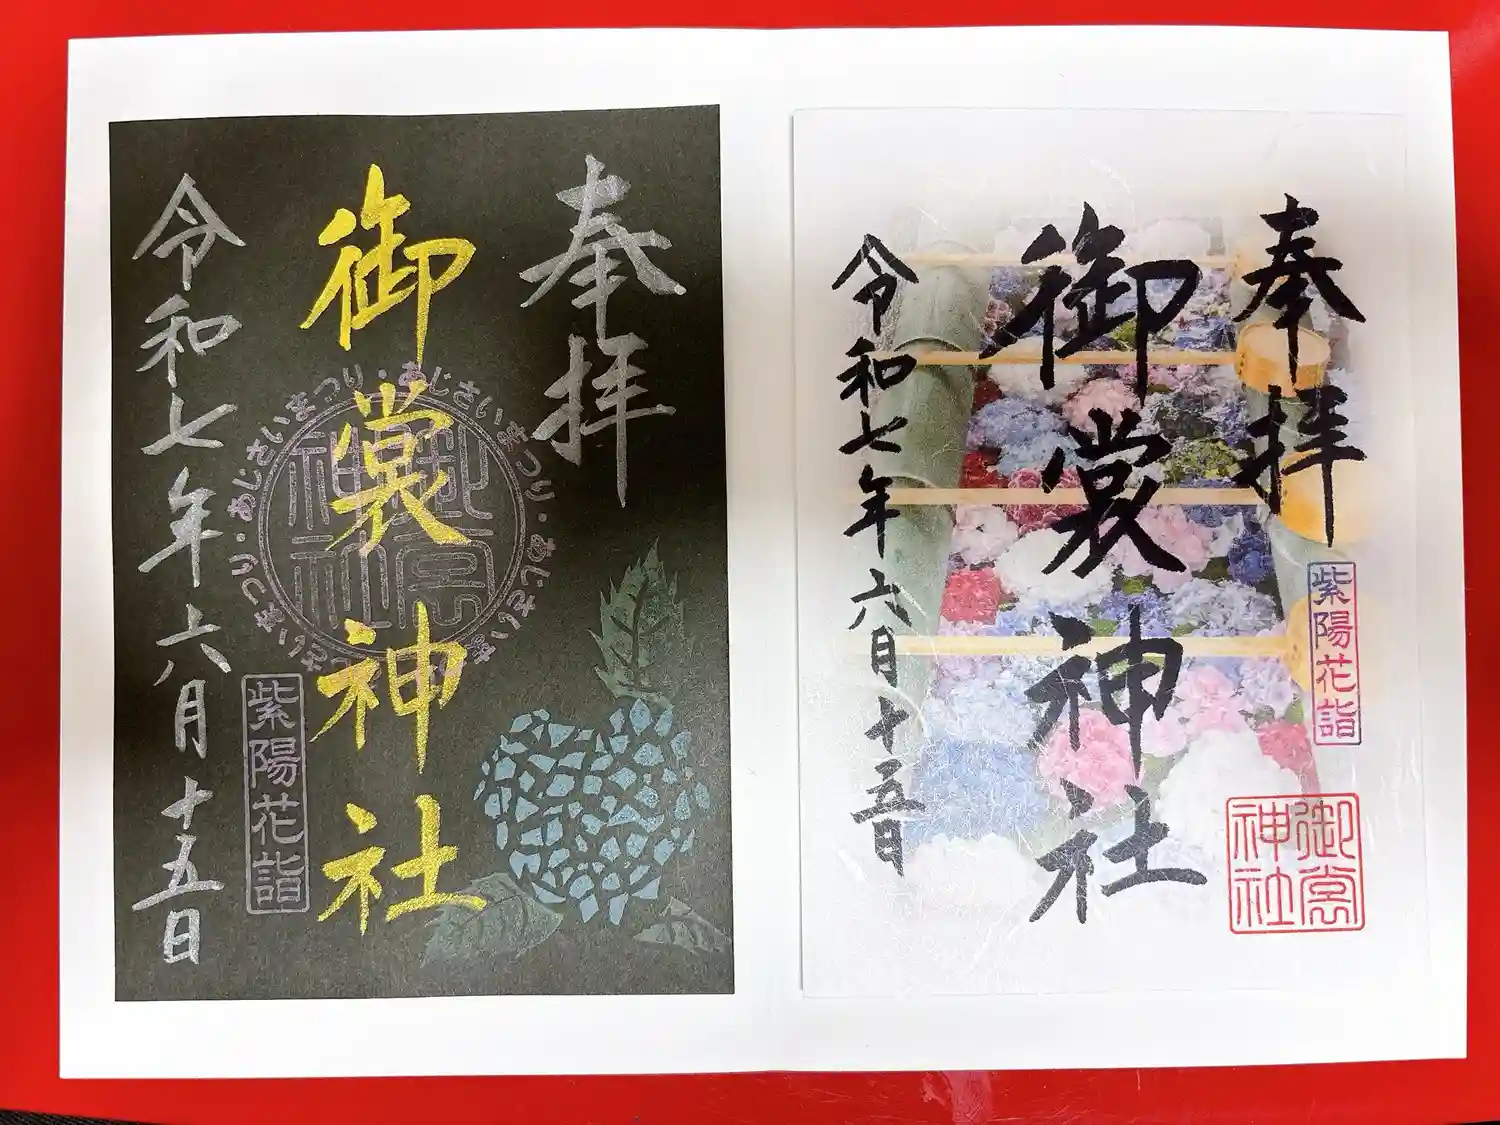 奉拝
紫陽花詣
御裳神社
御裳神社
令和七年六月十五日
奉拝
御裳神社
御裳神社
あじさいまつり・あじさいまつり・あじさいまつり・あじさいまつり・
紫陽花詣
令和七年六月十五日